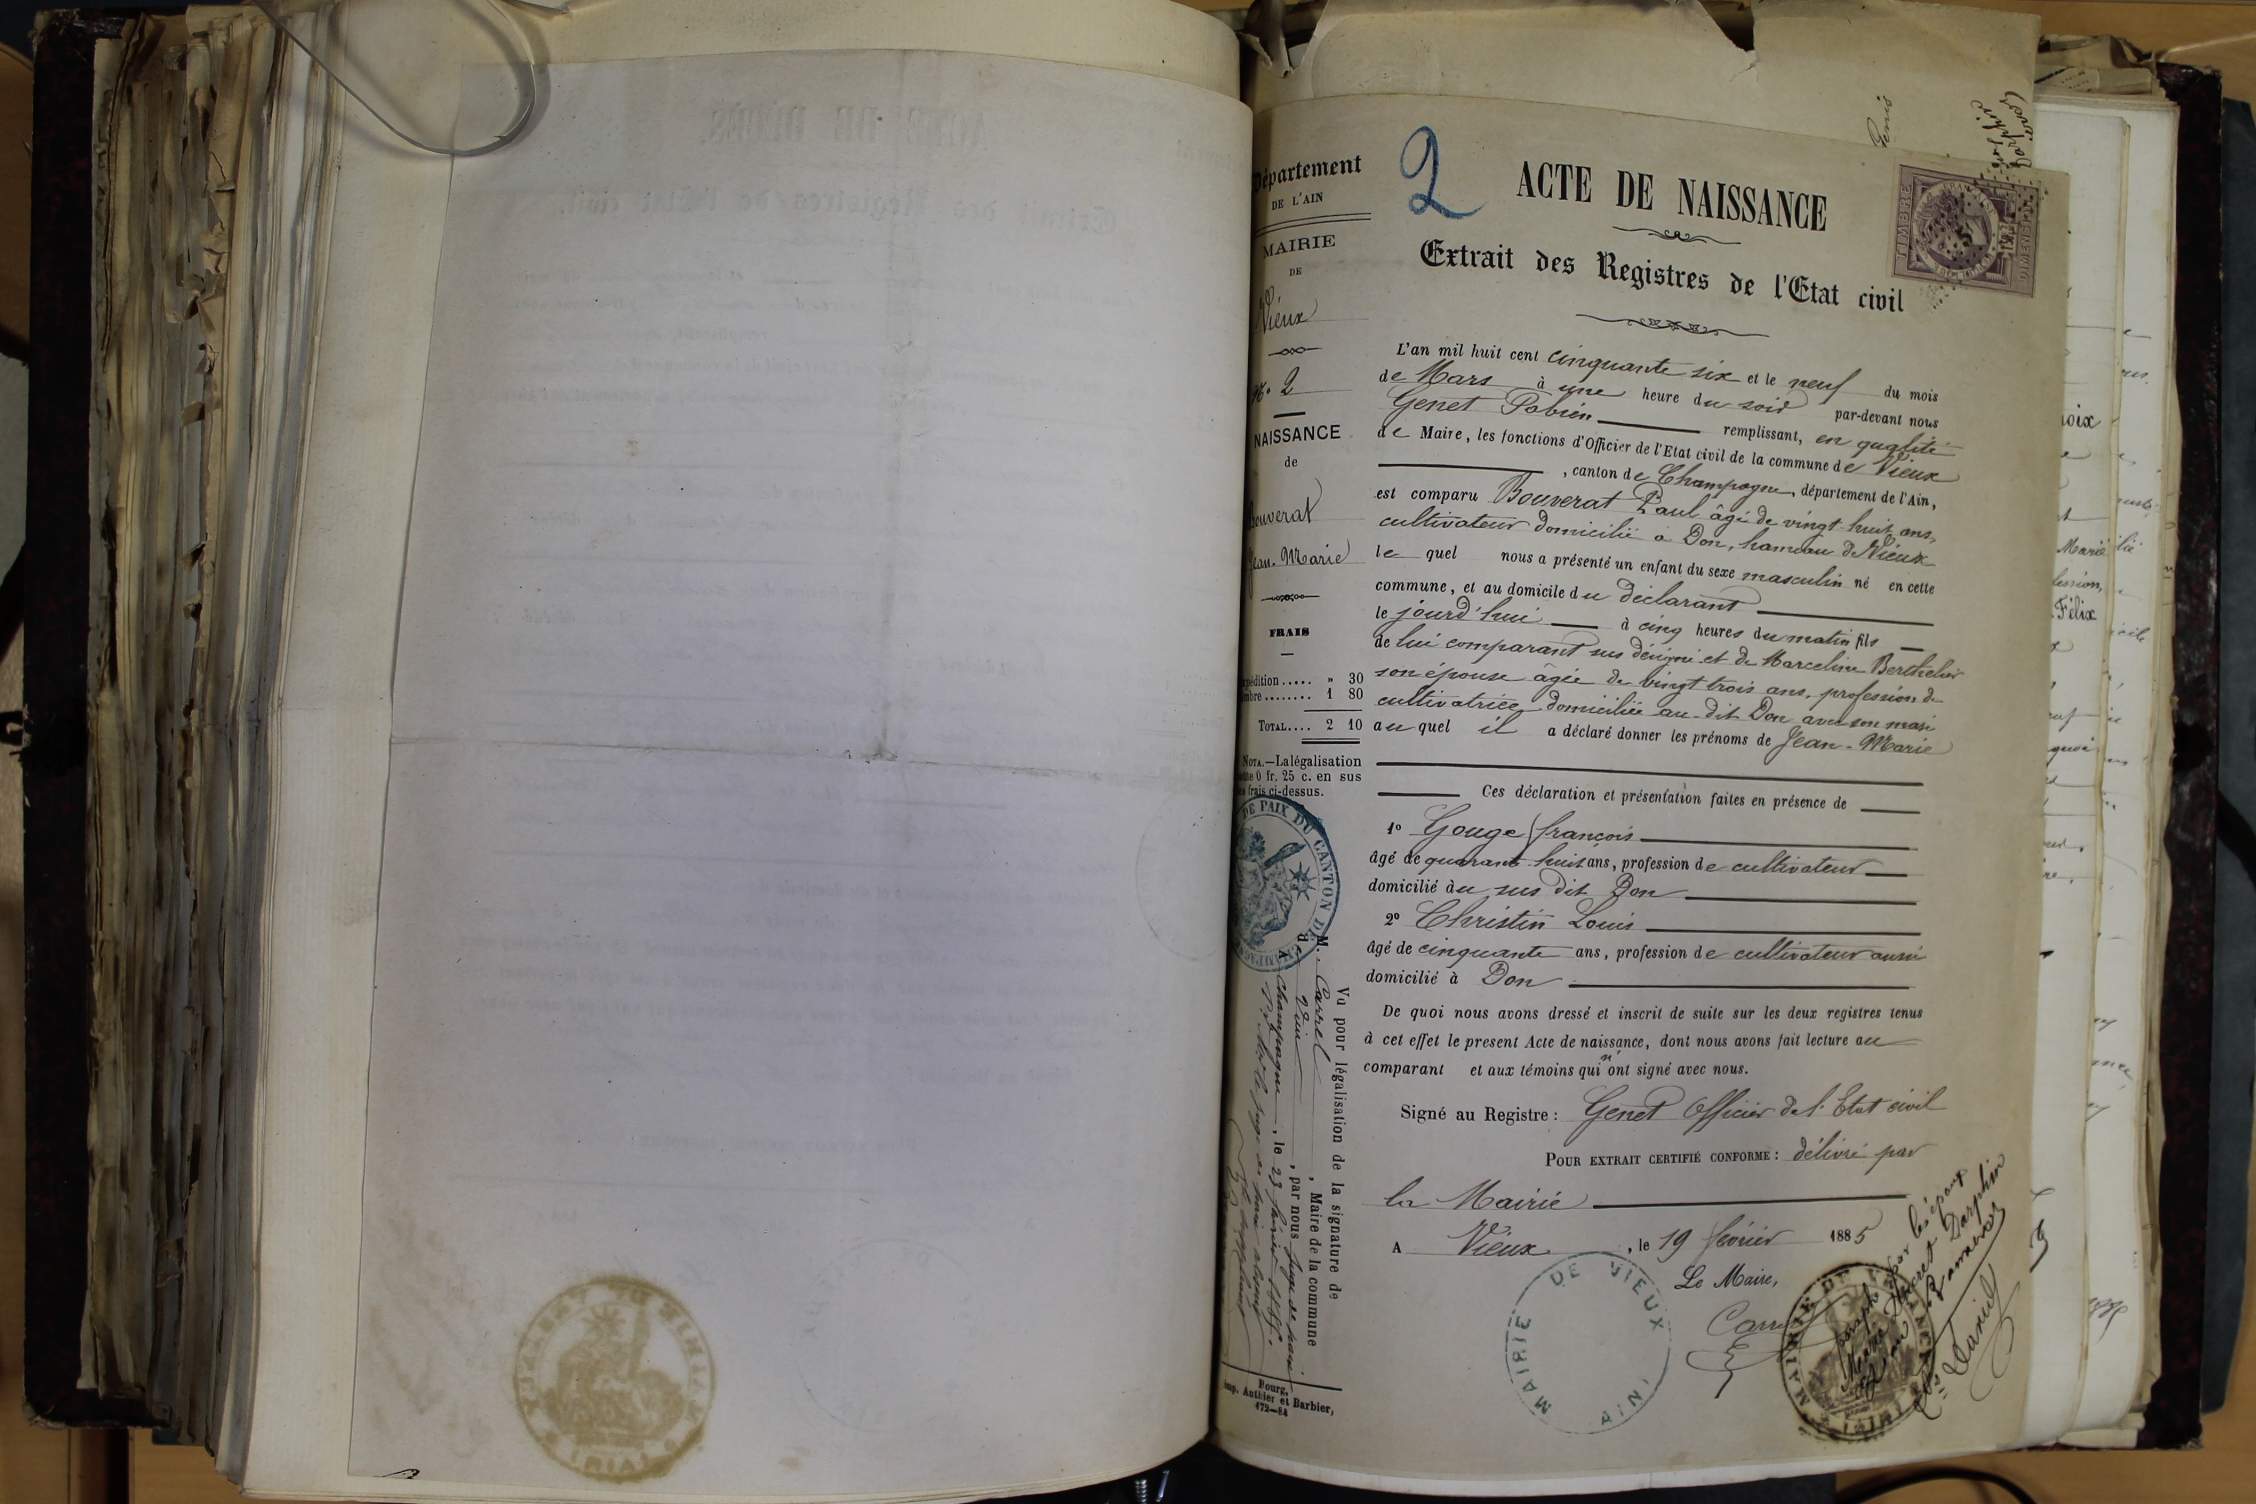 Département
DE L'AIN
MAIRIE
DE
Vieux
No. 2
NAISSANCE
de
Bouverat
Jean-Marie
FRAIS
Expédition..... » 30
Timbre........ 1 80
TOTAL.... 2 10
NOTA.—La légalisation
coûte 0 fr. 25 c. en sus
des frais ci-dessus.
DE PAIX DU CANTON DE
Vu pour légalisation de la signature de
M. Carrel, Maire de la commune
de Vieu, par nous Juge de paix
A Champagne, le 23 février
Bourg,
Imp. Authier et Barbier,
172—84
2
ACTE DE NAISSANCE
Extrait des Registres de l'Etat civil
TIMBRE
DIMENSION
L'an mil huit cent cinquante six et le neuf du mois
de Mars à une heure du soir par-devant nous
Genet Fabien remplissant, en qualité
de Maire, les fonctions d'Officier de l'Etat civil de la commune de Vieux
, canton de Champagne, département de l'Ain,
est comparu Bouverat Paul âgé de vingt-huit ans,
cultivateur domicilié à Don, hameau de Vieux
le quel nous a présenté un enfant du sexe masculin né en cette
commune, et au domicile du déclarant
le jourd'hui à cinq heures du matin fils
de lui comparant sus désigné et de Marceline Berthelier
son épouse âgée de vingt trois ans, profession de
cultivatrice domiciliée au-dit Don avec son mari
au quel il a déclaré donner les prénoms de Jean-Marie
Ces déclaration et présentation faites en présence de
1o Gouge françois
âgé de quarante huit ans, profession de cultivateur
domicilié au sus dit Don
2o Christin Louis
âgé de cinquante ans, profession de cultivateur aussi
domicilié à Don
De quoi nous avons dressé et inscrit de suite sur les deux registres tenus
à cet effet le present Acte de naissance, dont nous avons fait lecture au
comparant et aux témoins qui n'ont signé avec nous.
Signé au Registre: Genet Officier de l'Etat civil
POUR EXTRAIT CERTIFIÉ CONFORME: délivré par
la Mairie
A Vieux, le 19 février 1885
Le Maire,
Carrel
MAIRIE DE VIEUX
AIN
MAIRIE DE
(AIN)